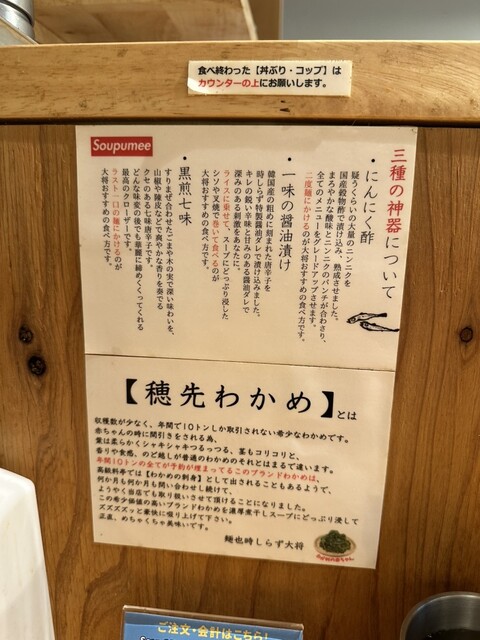 食べ終わった【丼ぶり・コップ】は
カウンターの上にお願いします。
Soupumee
三種の神器について
・にんにく酢
疑うくらいの大量のニンニクを
国産穀物酢で漬け込み、熟成させました。
まろやかな酸味とニンニクのパンチが合わさり、
全てのメニューをグレードアップさせます。
二度麺にかけるのが大将おすすめの食べ方です。
・一味の醤油漬け
韓国産の粗めに刻まれた唐辛子を
時しらず特製醤油ダレで漬け込みました。
キレの鋭い辛味と甘みのある醤油ダレで
深みのある刺激をあなたに。
ライスに乗せてスープにどっぷり浸した
シソや叉焼で巻いて食べるのが
大将おすすめの食べ方です。
・黒煎七味
すりまぜ合わせたごまや木の実で深い味わいを、
山椒や陳皮などで爽やかな香りを奏でる
クセのある七味唐辛子です。
どんな味変の後でも華麗に締めくくってくれる
最高のクローザーです。
ラスト一口の麺にかけるのが
大将おすすめの食べ方です。
【穂先わかめ】とは
収穫数が少なく、年間で10トンしか取引されない希少なわかめです。
赤ちゃんの時に間引きをされる為、
葉は柔らかくシャキシャキつるっつる、茎もコリコリと、
香りや食感、のど越しが普通のわかめのそれとはまるで違います。
年間10トンの全てが予約が埋まってるこのブランドわかめは、
高級料亭では【わかめの刺身】として出されることもあるようで、
何か月も何か月も問い合わせし続けて、
ようやく当店でも取り扱いさせて頂けることになりました。
この希少価値の高いブランドわかめを濃厚煮干しスープにどっぷり浸して
ズズズズッと豪快に啜り上げて下さい。
正直、めちゃくちゃ美味いです。
麺也時しらず大将
ご注文・会計はこちら！